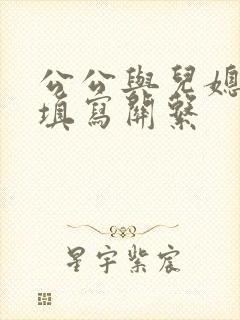 公公與兒媳
填寫關系
星宇紫宸